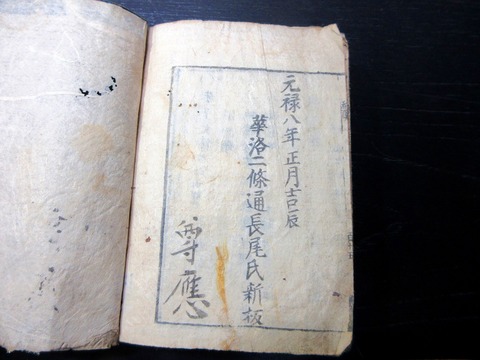 元禄八年正月吉辰
華洛二條通長尾氏新板
尊應